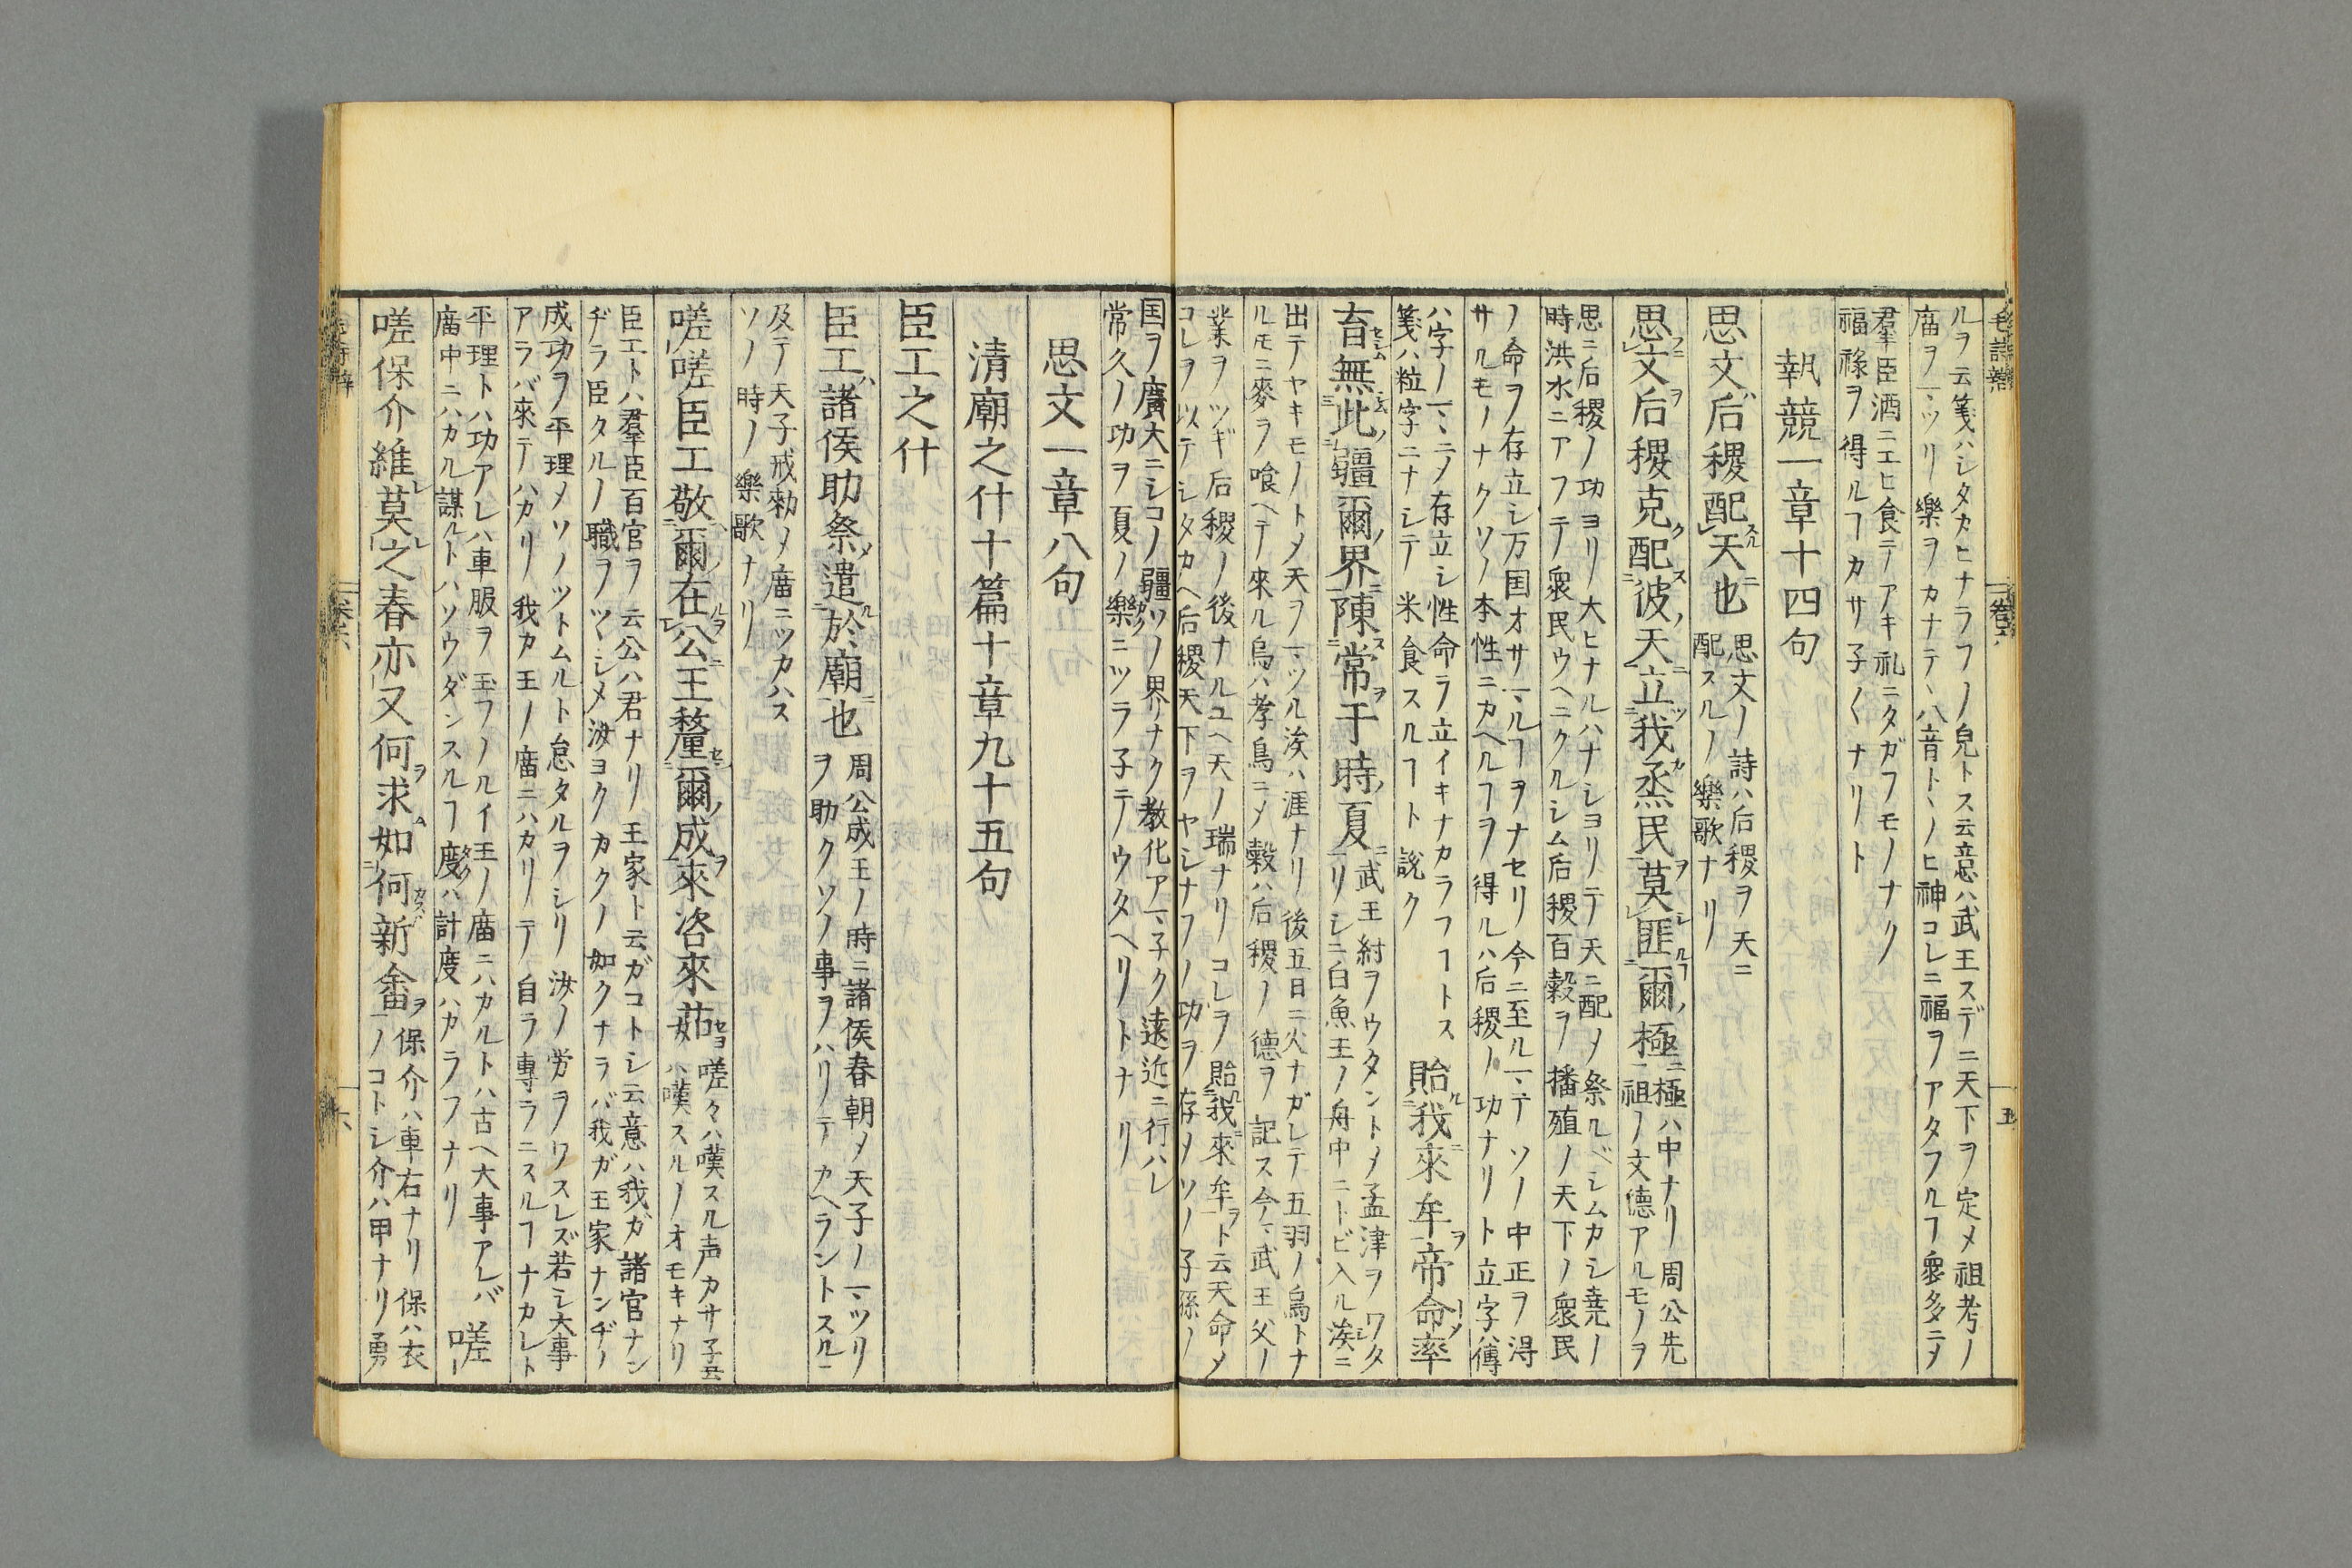 ルヲ云箋ハシタカヒナラフノ皃トス云意ハ武王スデニ天下ヲ定メ祖考ノ
庿ヲマツリ樂ヲカナテ八音トヽノヒ神コレニ福ヲアタフルヿ衆多ニメ
羣臣酒ニエヒ食テアキ礼ニタガフモノナク
福祿ヲ得ルヿカサ子〱ナリト
執競一章十四句
思文后稷配天也
思文ノ詩ハ后稷ヲ天ニ
配スルノ樂歌ナリ
思文后稷克配彼天立我烝民莫匪爾極
極ハ中ナリ周公先
祖ノ文德アルモノヲ
思ニ后稷ノ功ヨリ大ヒナルハナシヨリテ天ニ配メ祭ルベシムカシ堯ノ
時洪水ニアフテ衆民ウヘニクルシム后稷百穀ヲ播殖ノ天下ノ衆民
ノ命ヲ存立シ万国オサマルヿヲナセリ今ニ至ルマテソノ中正ヲ淂
サルモノナクソノ本性ニカヘルヿヲ得ルハ后稷ノ功ナリト立字ハ傳
ハ字ノマヽニメ存立シ性命ヲ立イキナカラフヿトス
箋ハ粒字ニナシテ米食スルヿト說ク
貽我來牟帝命率
育無此疆爾界陳常于時夏
武王紂ヲウタントメ孟津ヲワタ
リシニ白魚王ノ舟中ニトビ入ル涘ニ
出テヤキモノトメ天ヲマツル涘ハ涯ナリ後五日ニ火ナガレテ五羽ノ烏トナ
ルモニ麥ヲ喰ヘテ來ル烏ハ孝鳥ニメ穀ハ后稷ノ德ヲ記ス今武王父ノ
業ヲツギ后稷ノ後ナルユヘ天ノ瑞ナリコレヲ貽我來牟ト云天命メ
コレヲ以テシタカヘ后稷天下ヲヤシナフノ功ヲ存メソノ子孫ノ
国ヲ廣大ニシコノ疆ソノ界ナク教化アマ子ク遠近ニ行ハレ
常久ノ功ヲ夏ノ樂ニツラ子テウタヘリトナリ
思文一章八句
清廟之什十篇十章九十五句
臣工之什
臣工諸侯助祭遣於廟也
周公成王ノ時ニ諸侯春朝メ天子ノマツリ
ヲ助クソノ事ヲハリテカヘラントスルニ
及テ天子戒勑メ庿ニツカハス
ソノ時ノ樂歌ナリ
嗟嗟臣工敬爾在公王釐爾成來咨來茹
嗟々ハ嘆スル声カサ子云
ハ嘆スルノオモキナリ
臣工トハ羣臣百官ヲ云公ハ君ナリ王家ト云ガコトシ云意ハ我ガ諸官ナン
ヂラ臣タルノ職ヲツヽシメ汝ヨクカクノ如クナラバ我ガ王家ナンヂノ
成功ヲ平理メソノツトムルト怠タルヲシリ汝ノ労ヲワスレズ若シ大事
アラバ來テハカリ我カ王ノ庿ニハカリテ自ラ專ラニスルヿナカレト
平理トハ功アレハ車服ヲ玉フノルイ王ノ庿ニハカルトハ古ヘ大事アレバ
庿中ニハカル謀ルトハソウダンスルヿ度ハ計度ハカラフナリ
嗟
嗟保介維莫之春亦又何求如何新畬
保介ハ車右ナリ保ハ衣
ノコトシ介ハ甲ナリ勇